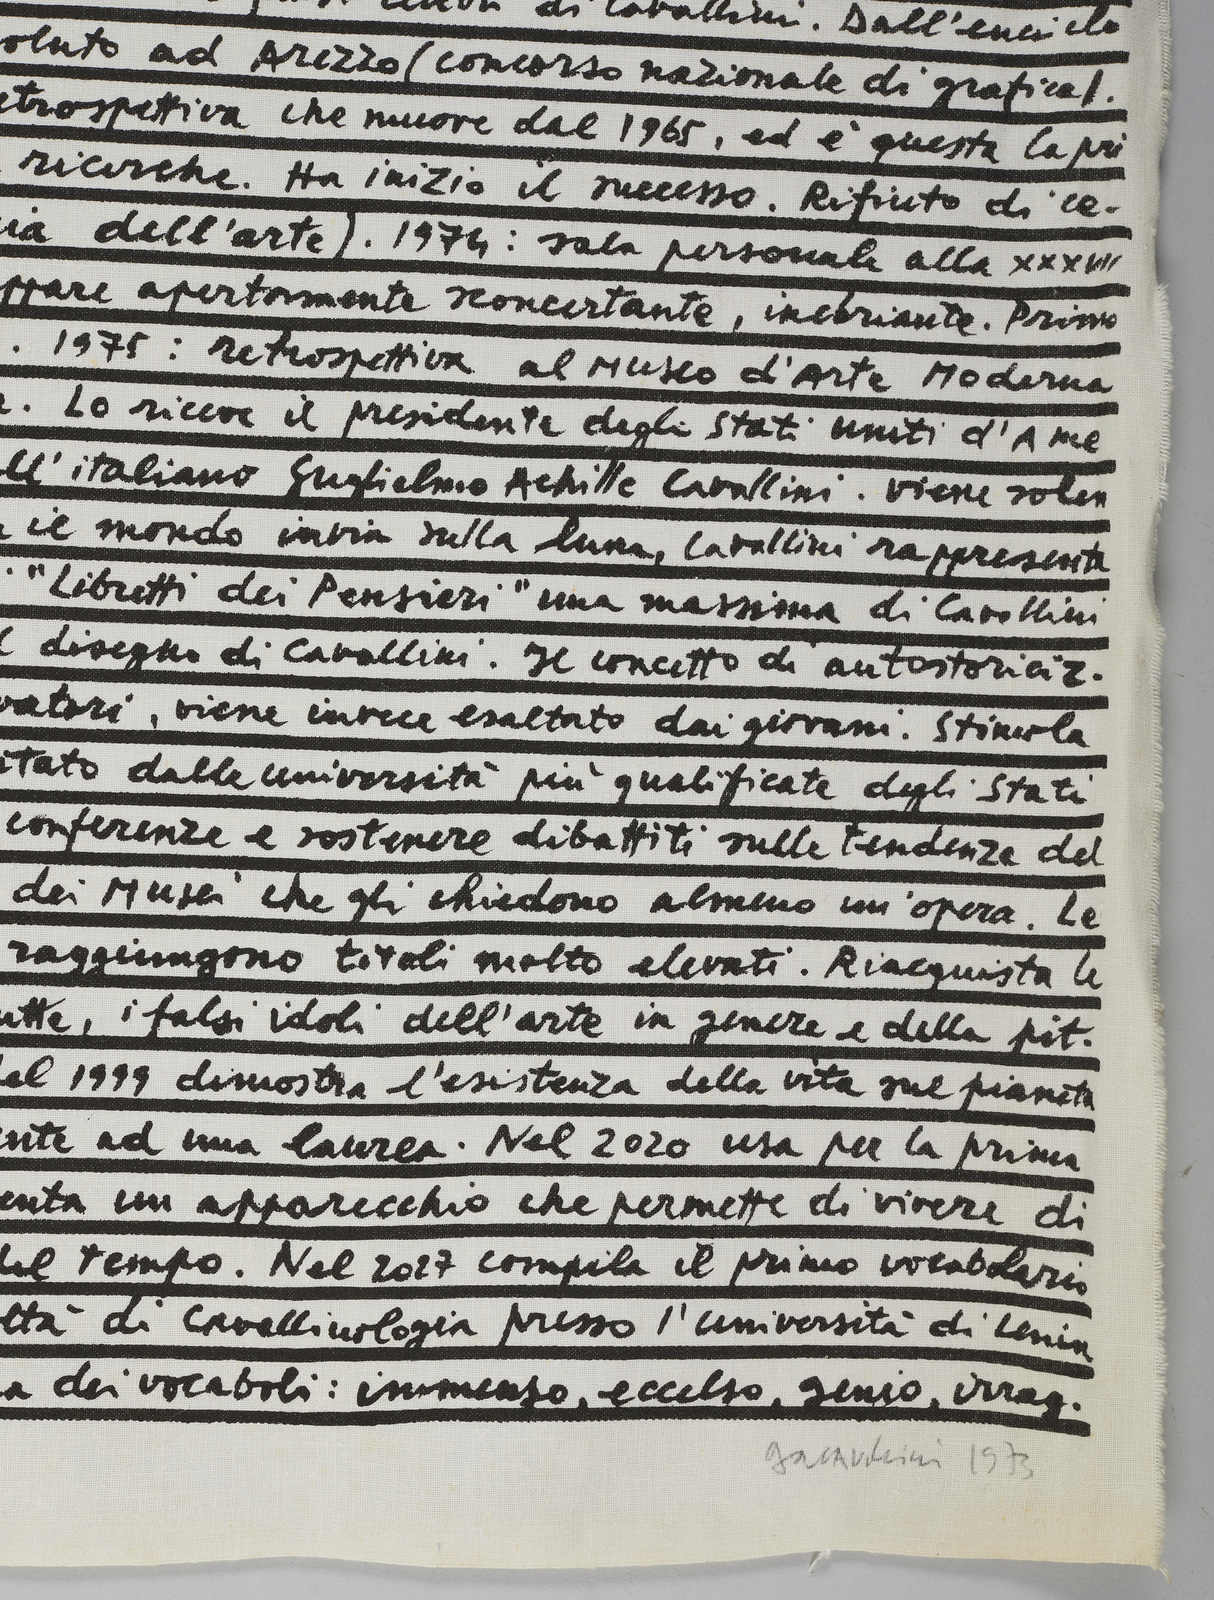 di Cavallini. Dall'enciclo
oluto ad Arezzo (concorso nazionale di grafica).
etrospettiva che muove dal 1965, ed è questa la pri
ricerche. Ha inizio il successo. Rifiuto di ce-
ia dell'arte). 1974: sala personale alla XXXVII
ppare apertamente sconcertante, inebriante. Primo
. 1975: retrospettiva al Museo d'Arte Moderna
a. Lo riceve il presidente degli Stati Uniti d'Ame
all'italiano Guglielmo Achille Cavallini. Viene solen
il mondo invia sulla luna, Cavallini rappresenta
i "Libretti dei Pensieri" una massima di Cavallini
l disegno di Cavallini. Il concetto di autostoriciz-
vatori, viene invece esaltato dai giovani. Stimola
itato dalle università più qualificate degli Stati
conferenze e sostenere dibattiti sulle tendenze del
dei Musei che gli chiedono almeno un'opera. Le
raggiungono titoli molto elevati. Riacquista le
utte, i falsi idoli dell'arte in genere e della pit-
del 1999 dimostra l'esistenza della vita sul pianeta
ente ad una laurea. Nel 2020 usa per la prima
enta un apparecchio che permette di vivere di
del tempo. Nel 2027 compila il primo vocabolario
oltà di Cavellinologia presso l'università di Lenin
a dei vocaboli: immenso, eccelso, genio, irrag-
gacavellini 1973